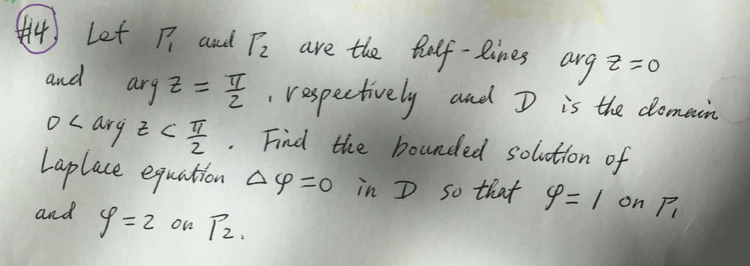 #4) Let Γ₁ and Γ₂ are the half-lines arg z = 0
and arg z = π/2, respectively and D is the domain
0 < arg z < π/2. Find the bounded solution of
Laplace equation Δφ = 0 in D so that φ = 1 on Γ₁
and φ = 2 on Γ₂.